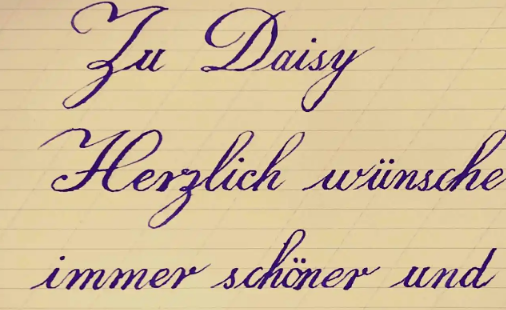 Zu Daisy
Herzlich wünsche
immer schöner und